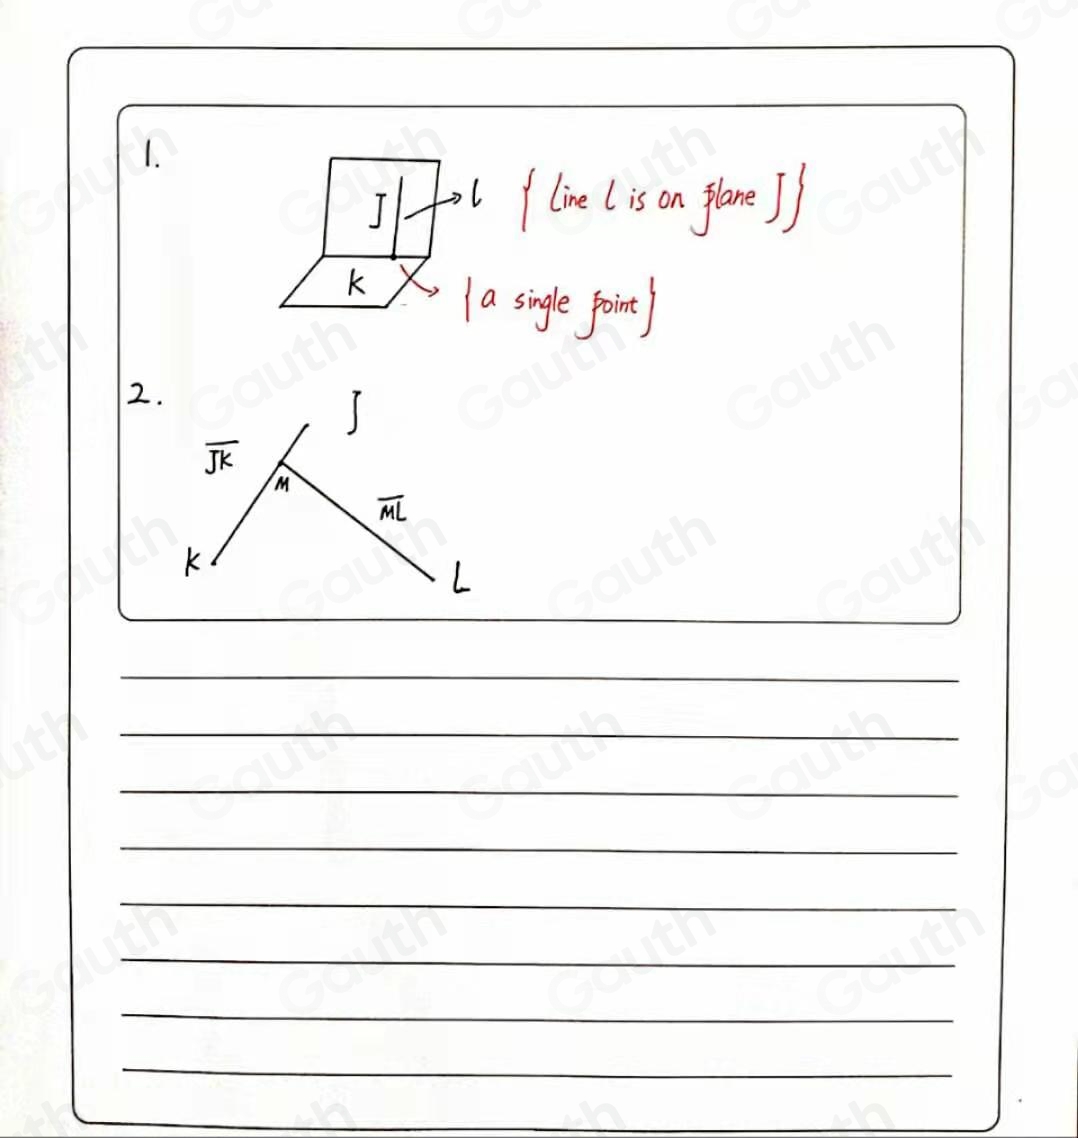 1.
J
l { Line l is on plane J}
K
{a single point}
2.
J
JK
M
ML
K
L
Gauth